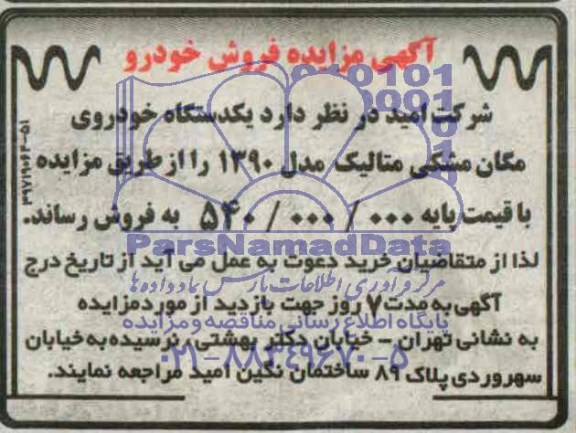 آگهی مزایده فروش خودرو
شرکت امید در نظر دارد یکدستگاه خودروی
مگان مشکی متالیک مدل ۱۳۹۰ را از طریق مزایده
با قیمت پایه ۵۴۰/۰۰۰/۰۰۰ به فروش رساند.
لذا از متقاضیان خرید دعوت به عمل می آید از تاریخ درج
آگهی به مدت ۷ روز جهت بازدید از مورد مزایده
به نشانی تهران - خیابان دکتر بهشتی، نرسیده به خیابان
سهروردی پلاک ۸۹ ساختمان نگین امید مراجعه نمایند.
ParsNamadData
مرکز فرآوری اطلاعات پارس نماد داده ها
پایگاه اطلاع رسانی مناقصه و مزایده
۰۲۱-۸۸۳۴۹۶۷۰-۵